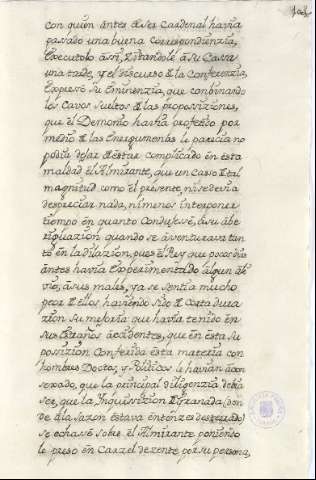 con quien antes de ser Cardenal havia
passado una buena Correspondienzia,
Executolo assi, Visitandole a su Cassa
una tarde, y el discurso de la Conferenzia,
Expresso su Eminenzia, que conbinando
los Cavos sueltos de las proposiziones,
que el Demonio havia proferido por
medio de las Energumenas le parecia no
podia dejar de estar complicado en esta
maldad el Almirante, que un caso de tal
magnitud como el presente, no se devia
despreciar nada, ni menos interponer
tiempo en quanto Condujesse, a su abe
riguazion quando se aventurava tan
to en la dilazion, pues el Rey que pocos dias
antes havia Experimentado algun ali
vio, a sus males, ya se sentia mucho
peor de ellos haviendo sido de Corta dura
zion su mejoria que havia tenido en
sus Estraños accidentes, que en esta su
posizion Conferida esta materia con
hombres Doctos, y Politicos le havian acon
sexado, que la prinzipal diligenzia debia
ser, que la Inquissizion de Granada (don
de a la sazon estava entonzes desterrado)
se echasse sobre el Almirante poniendo
le preso en Carzel dezente por su persona,